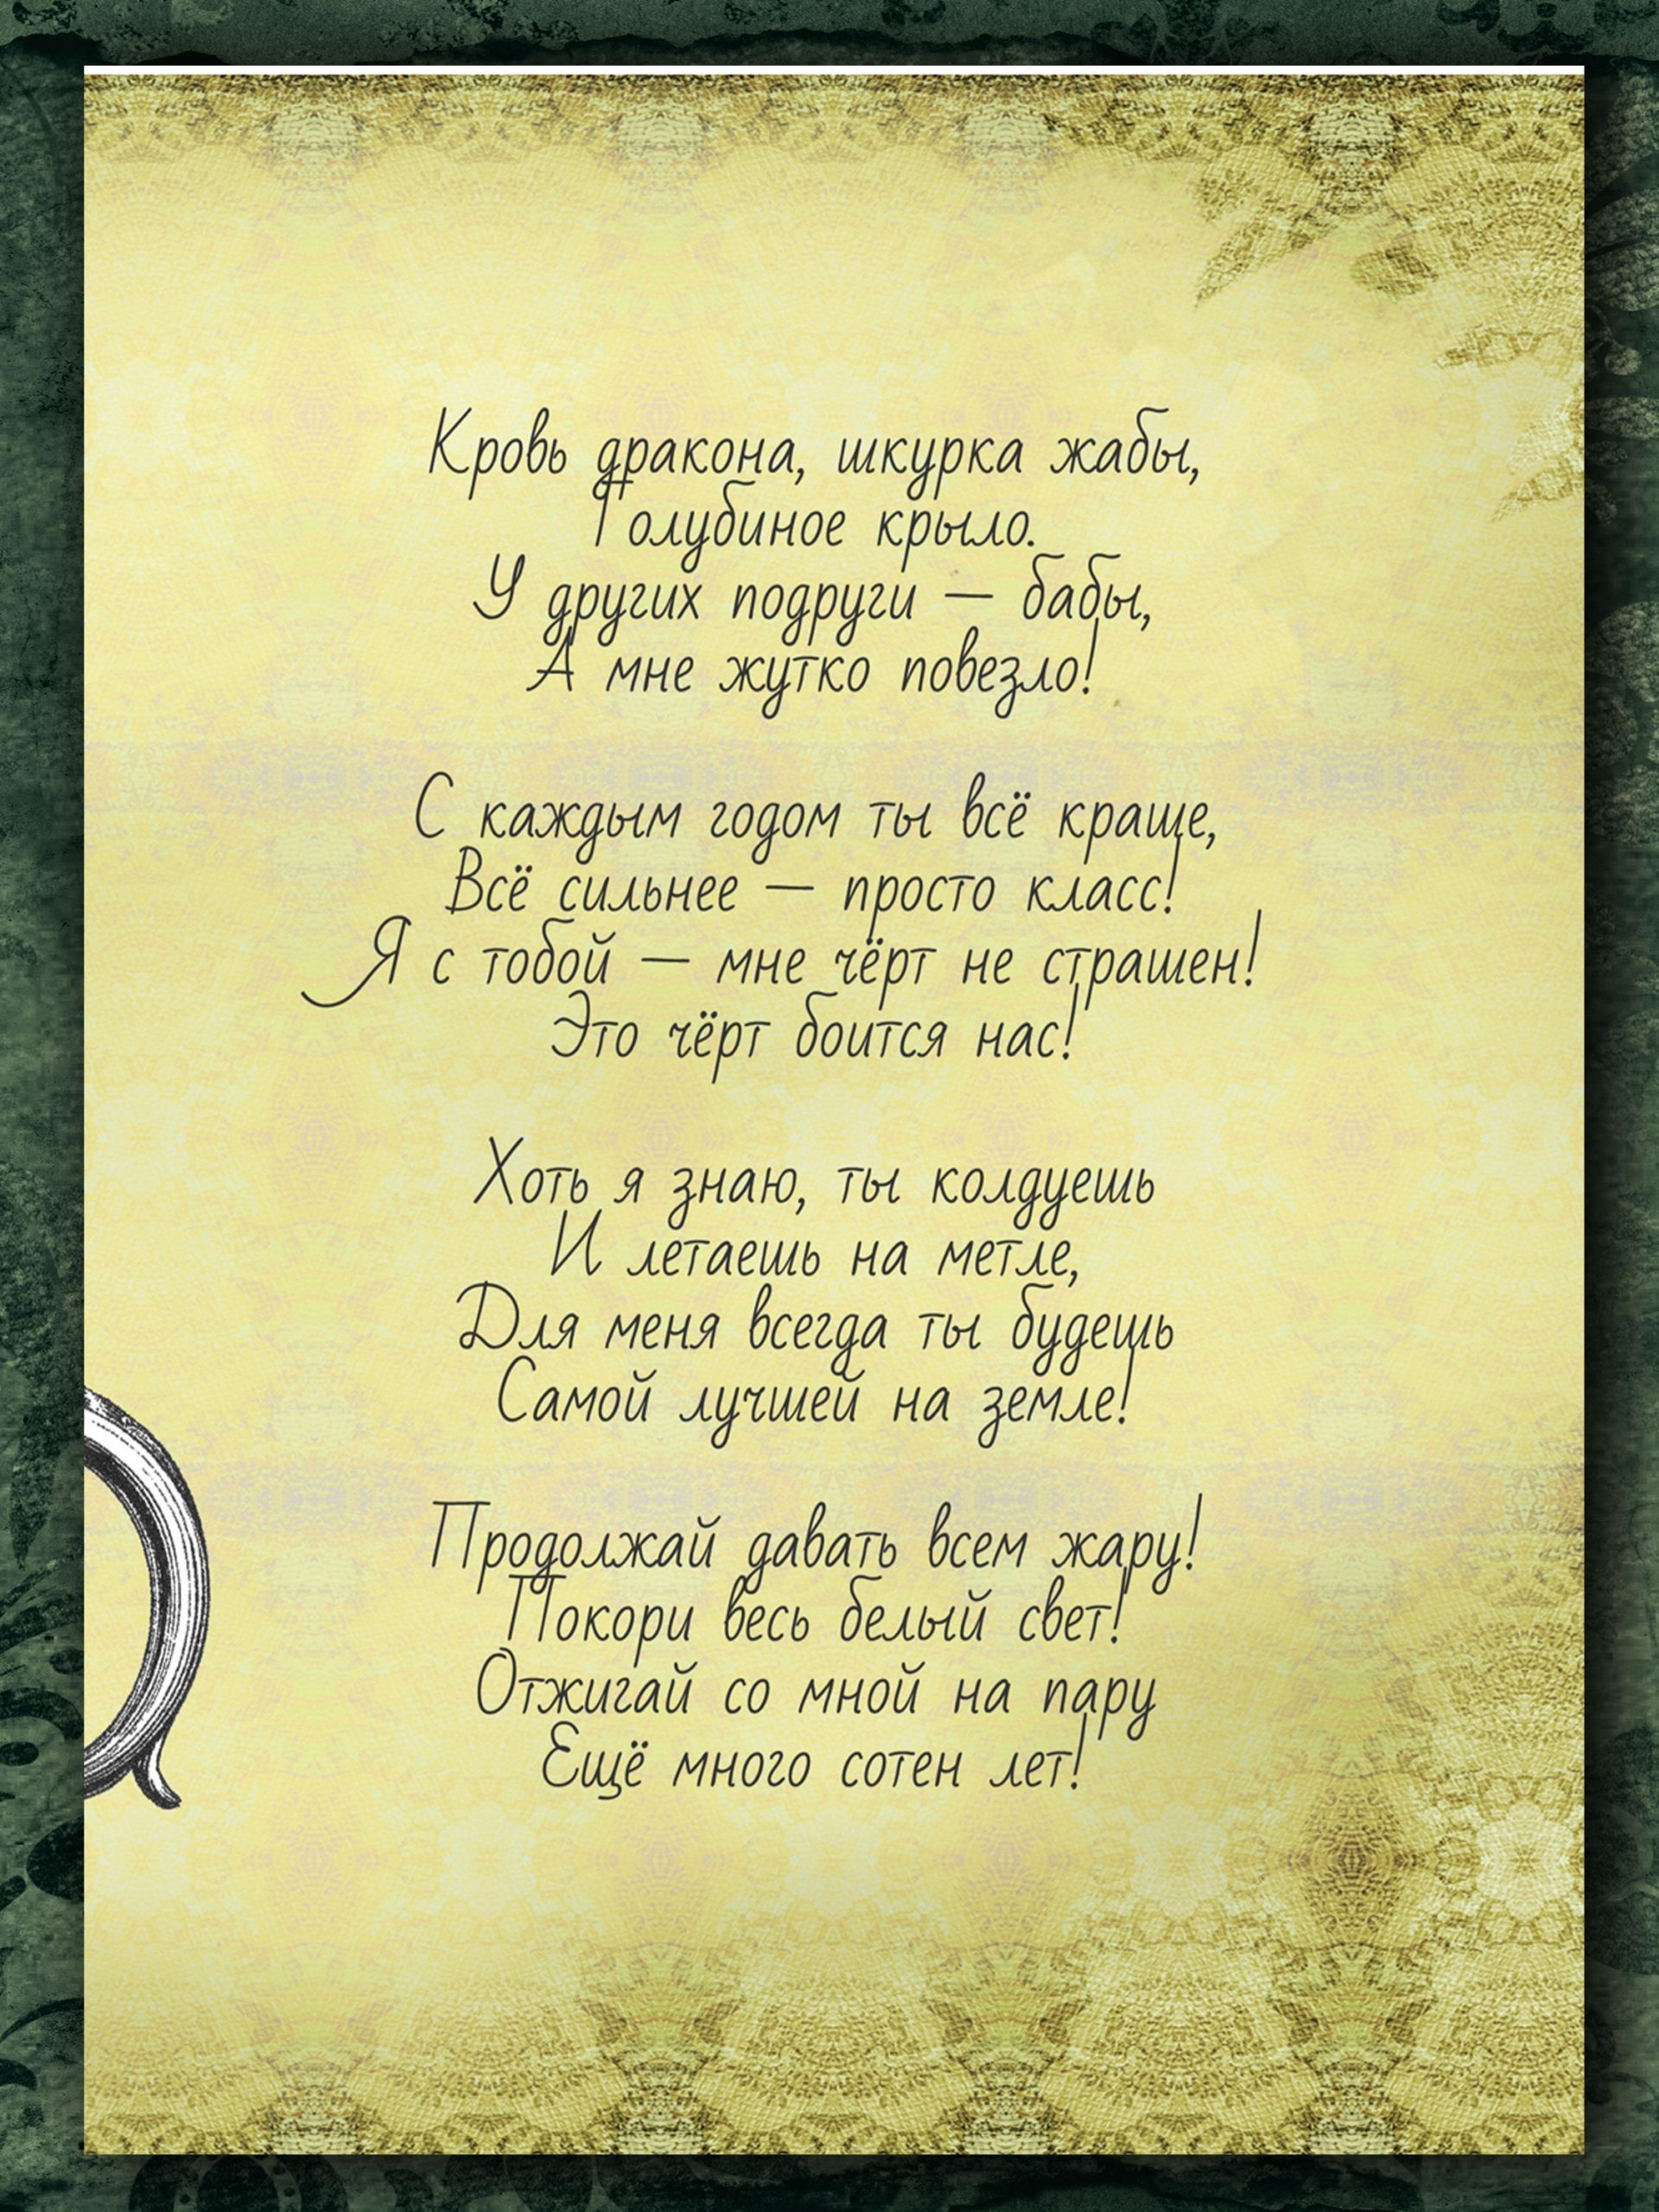 Кровь дракона, шкурка жабы,
Голубиное крыло.
У других подруги — бабы,
А мне жутко повезло!
С каждым годом ты всё краще,
Всё сильнее — просто класс!
Я с тобой — мне чёрт не страшен!
Это чёрт боится нас!
Хоть я знаю, ты колдуешь
И летаешь на метле,
Для меня всегда ты будешь
Самой лучшей на земле!
Продолжай давать всем жару!
Покори весь белый свет!
Отжигай со мной на пару
Ещё много сотен лет!